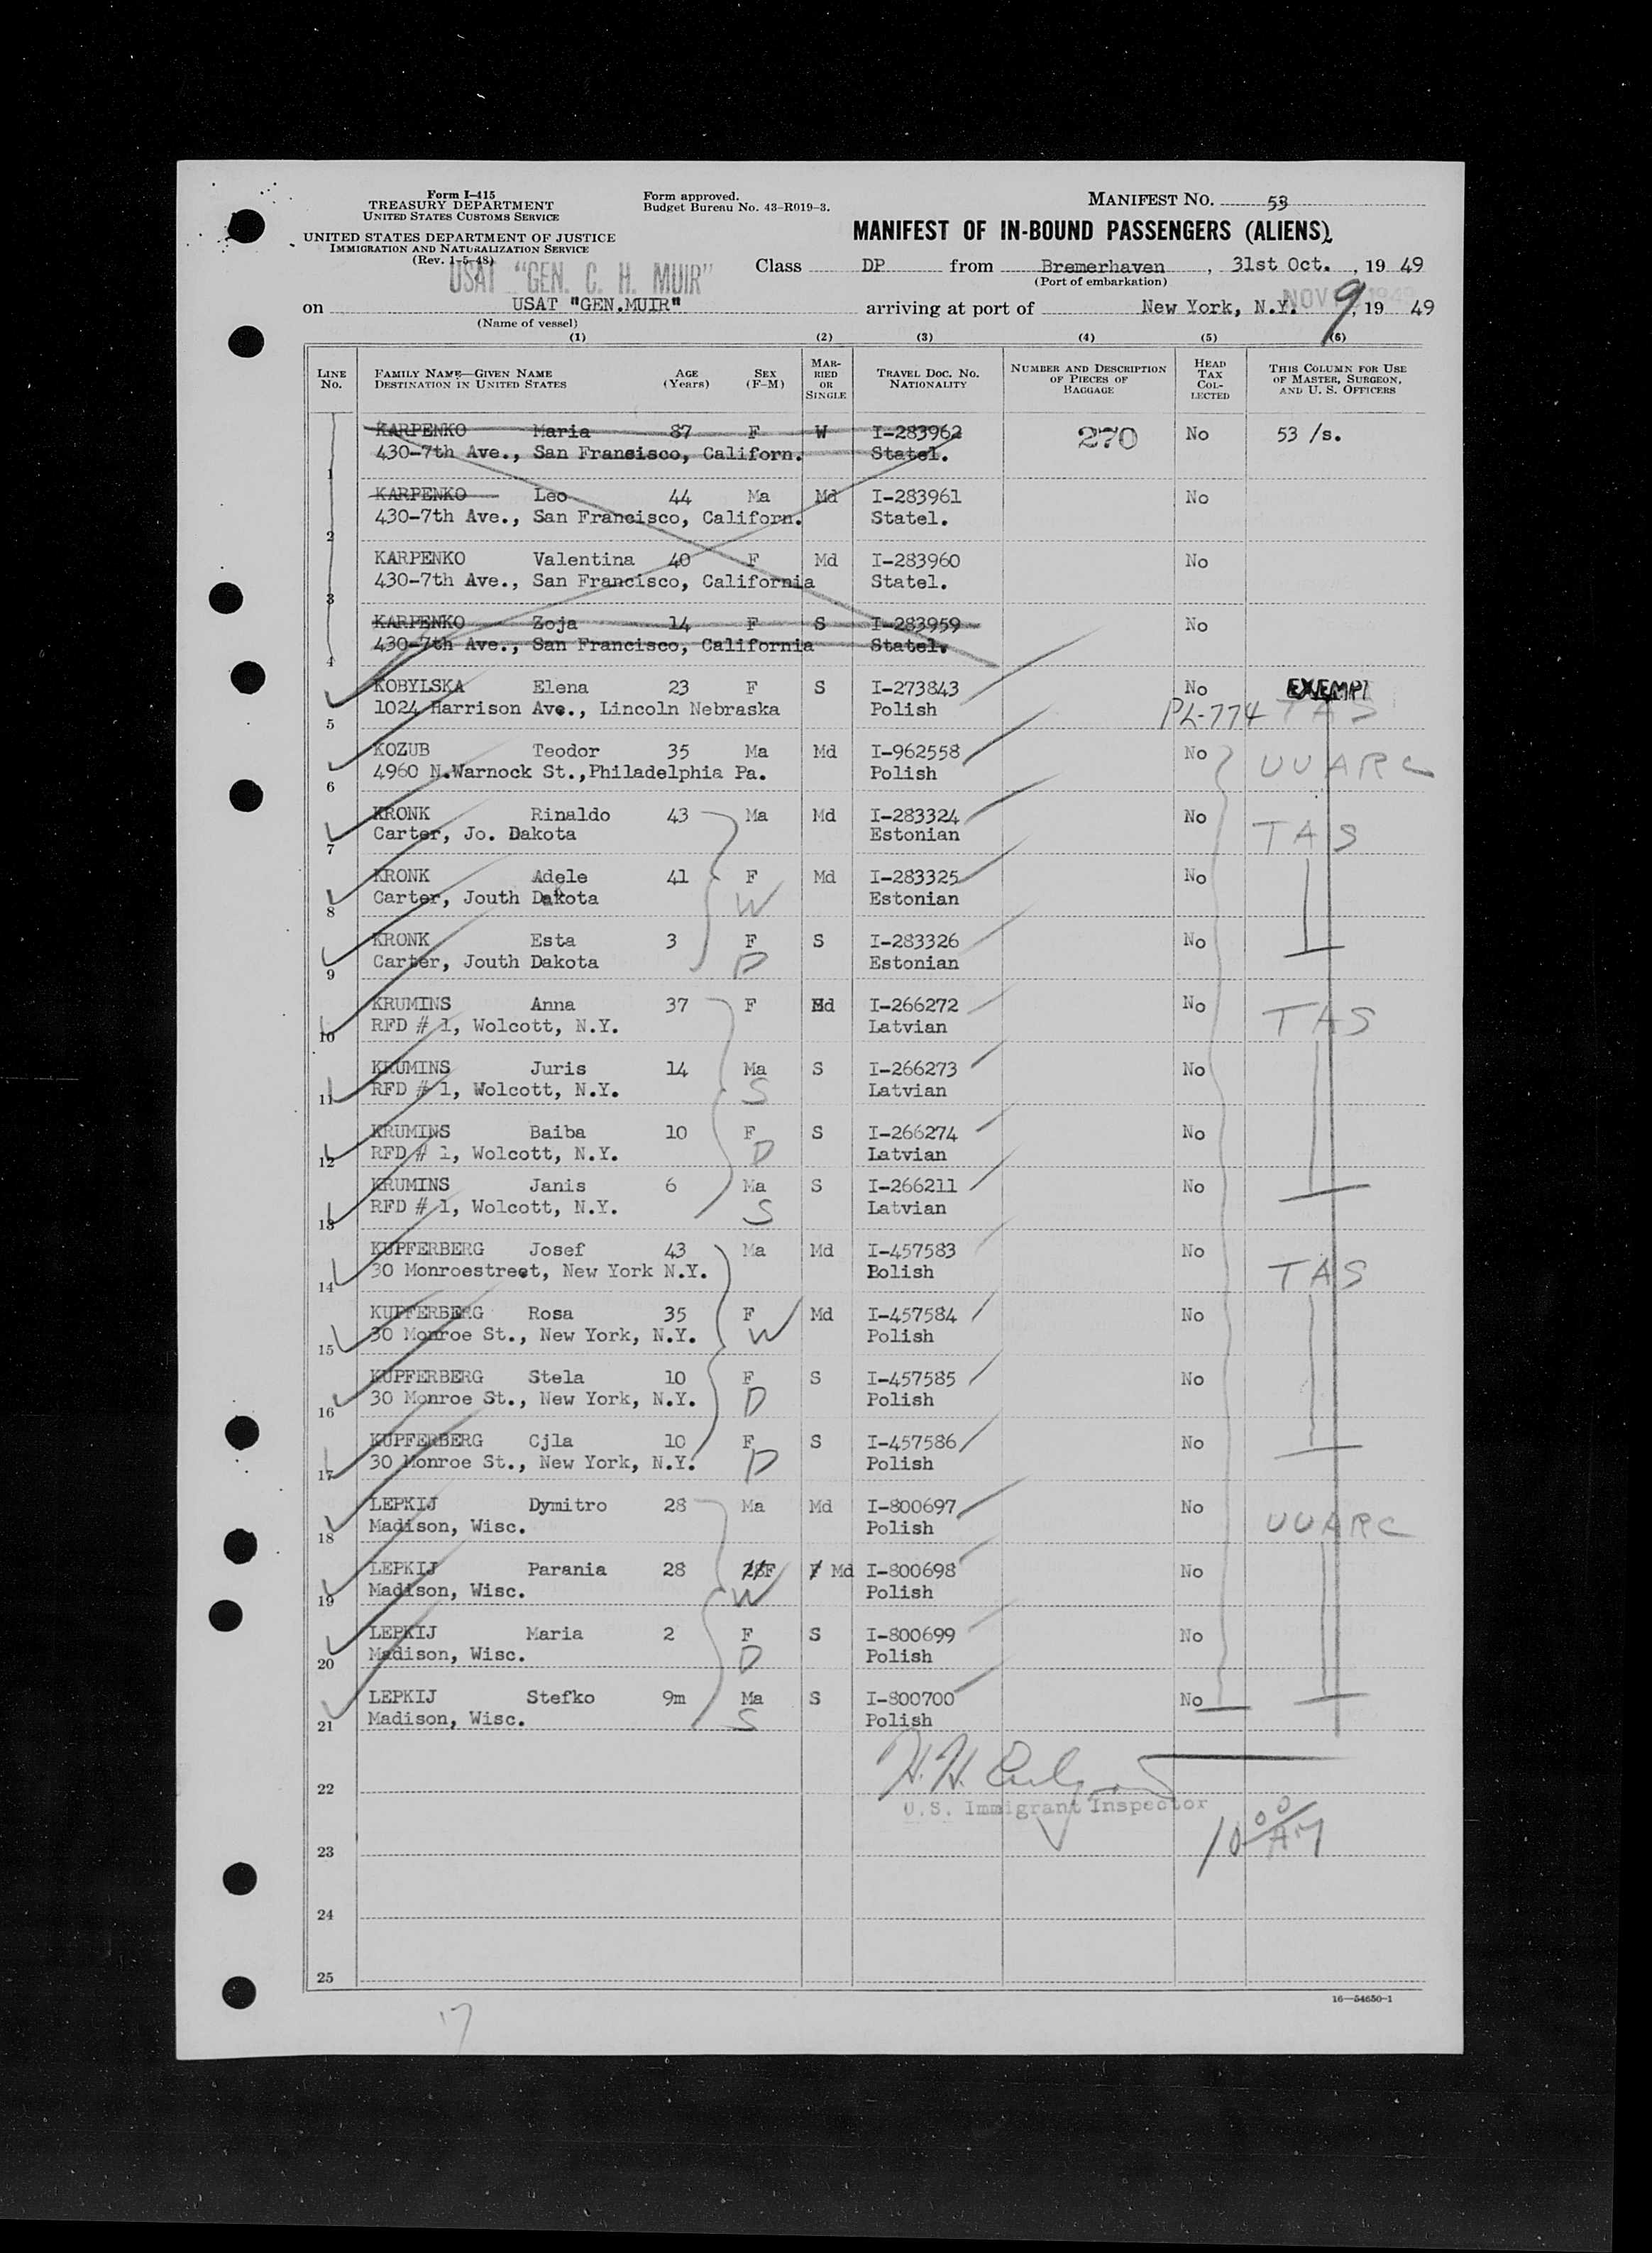 Form I-415
TREASURY DEPARTMENT
UNITED STATES CUSTOMS SERVICE
UNITED STATES DEPARTMENT OF JUSTICE
IMMIGRATION AND NATURALIZATION SERVICE
(Rev. 1-5-48)
Form approved.
Budget Bureau No. 43-R019-3.
MANIFEST NO. 53
MANIFEST OF IN-BOUND PASSENGERS (ALIENS)
USAT "GEN. C. H. MUIR"
Class DP from Bremerhaven, 31st Oct., 19 49
(Port of embarkation)
on USAT "GEN.MUIR" arriving at port of New York, N.Y. NOV 9, 19 49
(Name of vessel)
(1) (2) (3) (4) (5) (6)
LINE No. FAMILY NAME—GIVEN NAME DESTINATION IN UNITED STATES AGE (Years) SEX (F-M) MARRIED OR SINGLE TRAVEL DOC. No. NATIONALITY NUMBER AND DESCRIPTION OF PIECES OF BAGGAGE HEAD TAX COLLECTED THIS COLUMN FOR USE OF MASTER, SURGEON, AND U. S. OFFICERS
KARPENKO Maria 87 F W I-283962 270 No 53 /s.
1 430-7th Ave., San Francisco, Californ. Statel.
KARPENKO Leo 44 Ma Md I-283961 No
2 430-7th Ave., San Francisco, Californ. Statel.
KARPENKO Valentina 40 F Md I-283960 No
3 430-7th Ave., San Francisco, California Statel.
KARPENKO Zoja 14 F S I-283959 No
4 430-7th Ave., San Francisco, California Statel.
KOBYLSKA Elena 23 F S I-273843 No EXEMPT
5 1024 Harrison Ave., Lincoln Nebraska Polish PL-774 TAS
KOZUB Teodor 35 Ma Md I-962558 No UUARC
6 4960 N.Warnock St.,Philadelphia Pa. Polish
KRONK Rinaldo 43 Ma Md I-283324 No TAS
7 Carter, Jo. Dakota Estonian
KRONK Adele 41 F Md I-283325 No
8 Carter, Jouth Dakota W Estonian
KRONK Esta 3 F S I-283326 No
9 Carter, Jouth Dakota D Estonian
KRUMINS Anna 37 F Md I-266272 No TAS
10 RFD # 1, Wolcott, N.Y. Latvian
KRUMINS Juris 14 Ma S I-266273 No
11 RFD # 1, Wolcott, N.Y. S Latvian
KRUMINS Baiba 10 F S I-266274 No
12 RFD # 1, Wolcott, N.Y. D Latvian
KRUMINS Janis 6 Ma S I-266211 No
13 RFD # 1, Wolcott, N.Y. S Latvian
KUPFERBERG Josef 43 Ma Md I-457583 No TAS
14 30 Monroestreet, New York N.Y. Polish
KUPFERBERG Rosa 35 F Md I-457584 No
15 30 Monroe St., New York, N.Y. W Polish
KUPFERBERG Stela 10 F S I-457585 No
16 30 Monroe St., New York, N.Y. D Polish
KUPFERBERG Cjla 10 F S I-457586 No
17 30 Monroe St., New York, N.Y. D Polish
LEPKIJ Dymitro 28 Ma Md I-800697 No UUARC
18 Madison, Wisc. Polish
LEPKIJ Parania 28 28F F Md I-800698 No
19 Madison, Wisc. W Polish
LEPKIJ Maria 2 F S I-800699 No
20 Madison, Wisc. D Polish
LEPKIJ Stefko 9m Ma S I-800700 No
21 Madison, Wisc. S Polish
22 H. H.
U.S. Immigrant Inspector
23 10 00 AM
24
25
16—54650-1
17